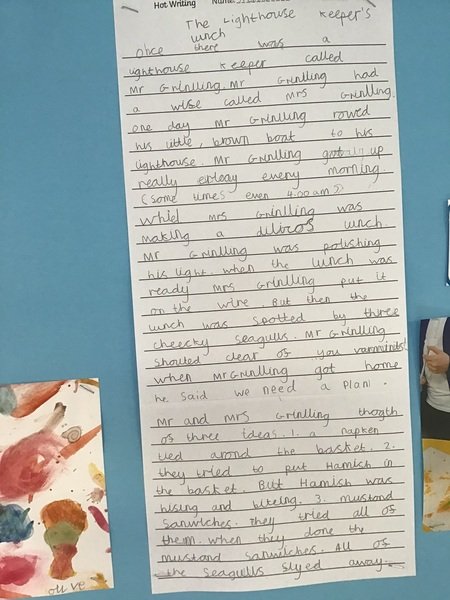 Hot Writing Name:
The Lighthouse Keeper's
lunch
once there was a
lighthouse keeper called
Mr Grinlling. Mr Grinlling had
a wise called Mrs Grinlling.
one day Mr Grinlling rowed
his little, brown boat to his
lighthouse. Mr Grinlling got up
really erleay every morning.
(Some times even 4:00am)
Whiel Mrs Grinlling was
making a dilicos lunch.
Mr Grinlling was polishing
his light. when the lunch was
ready Mrs Grinlling put it
on the wire. But then the
lunch was spotted by three
cheecky seagulls. Mr Grinlling
shouted clear of you varminds!
when Mr Grinlling got home
he said we need a plan.
Mr and Mrs Grinlling thogth
of three ideas. 1. a napken
tied arond the basket. 2.
they tried to put Hamish in
the basket. But Hamish was
hising and biteing. 3. mustand
Sanwiches. they tried all of
them. when they done the
mustand sanwiches. All of
the seagulls styed away.
olive